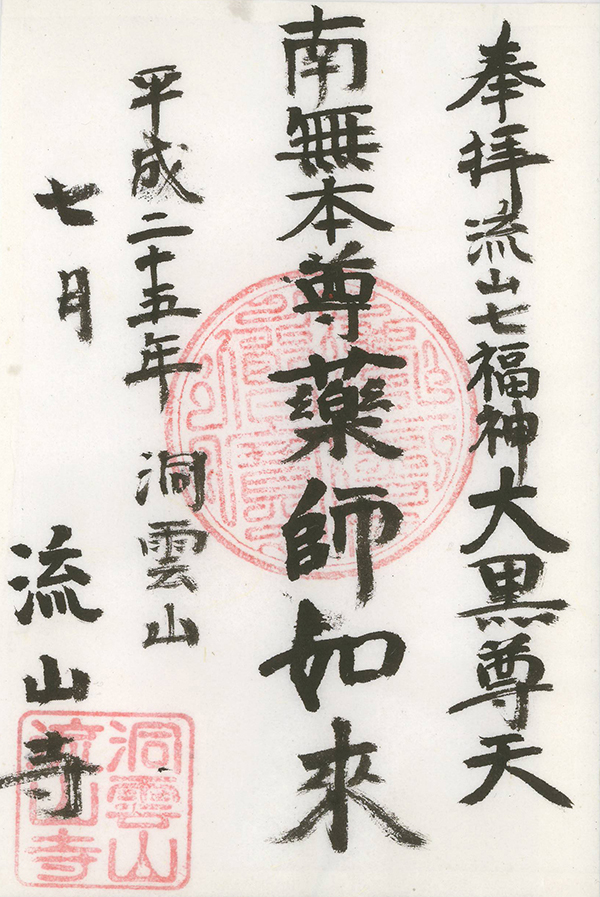 奉拝流山七福神大黒尊天
南無本尊薬師如來
平成二十五年
七月
洞雲山
流山寺
洞雲山
流山寺